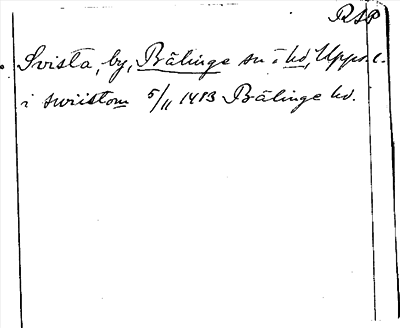 RSP
Svista, by, Bälinge sn o hd, Upps. l.
i swiistom 5/11 1413 Bälinge hd.